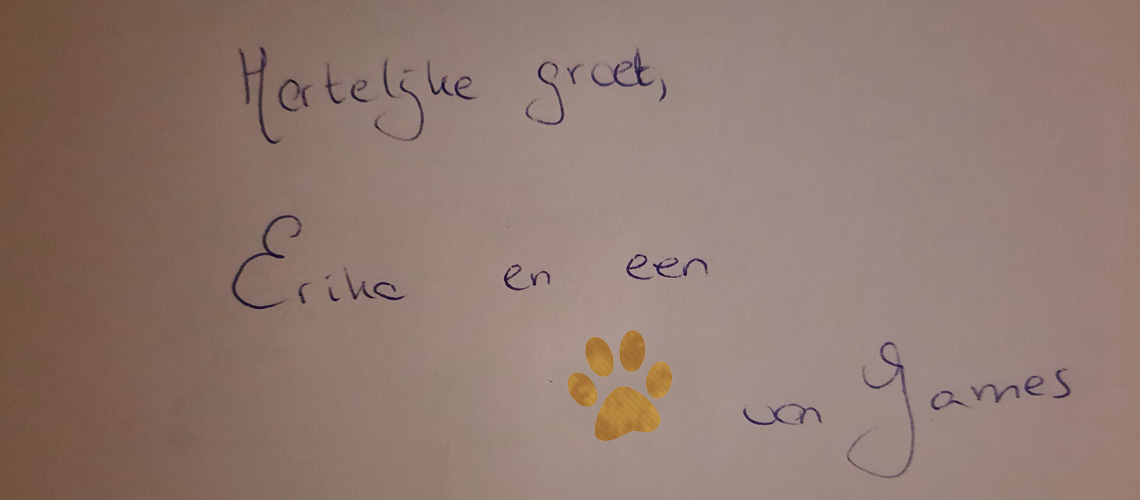 Hartelijke groet,
Erika en een
van James